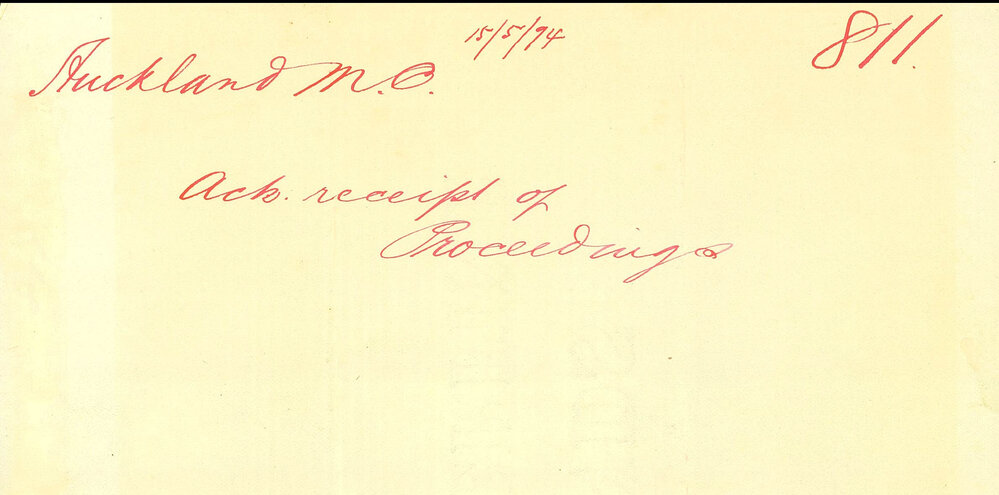 15/5/94
811.
Auckland M.C.
Ack. receipt of
Proceedings